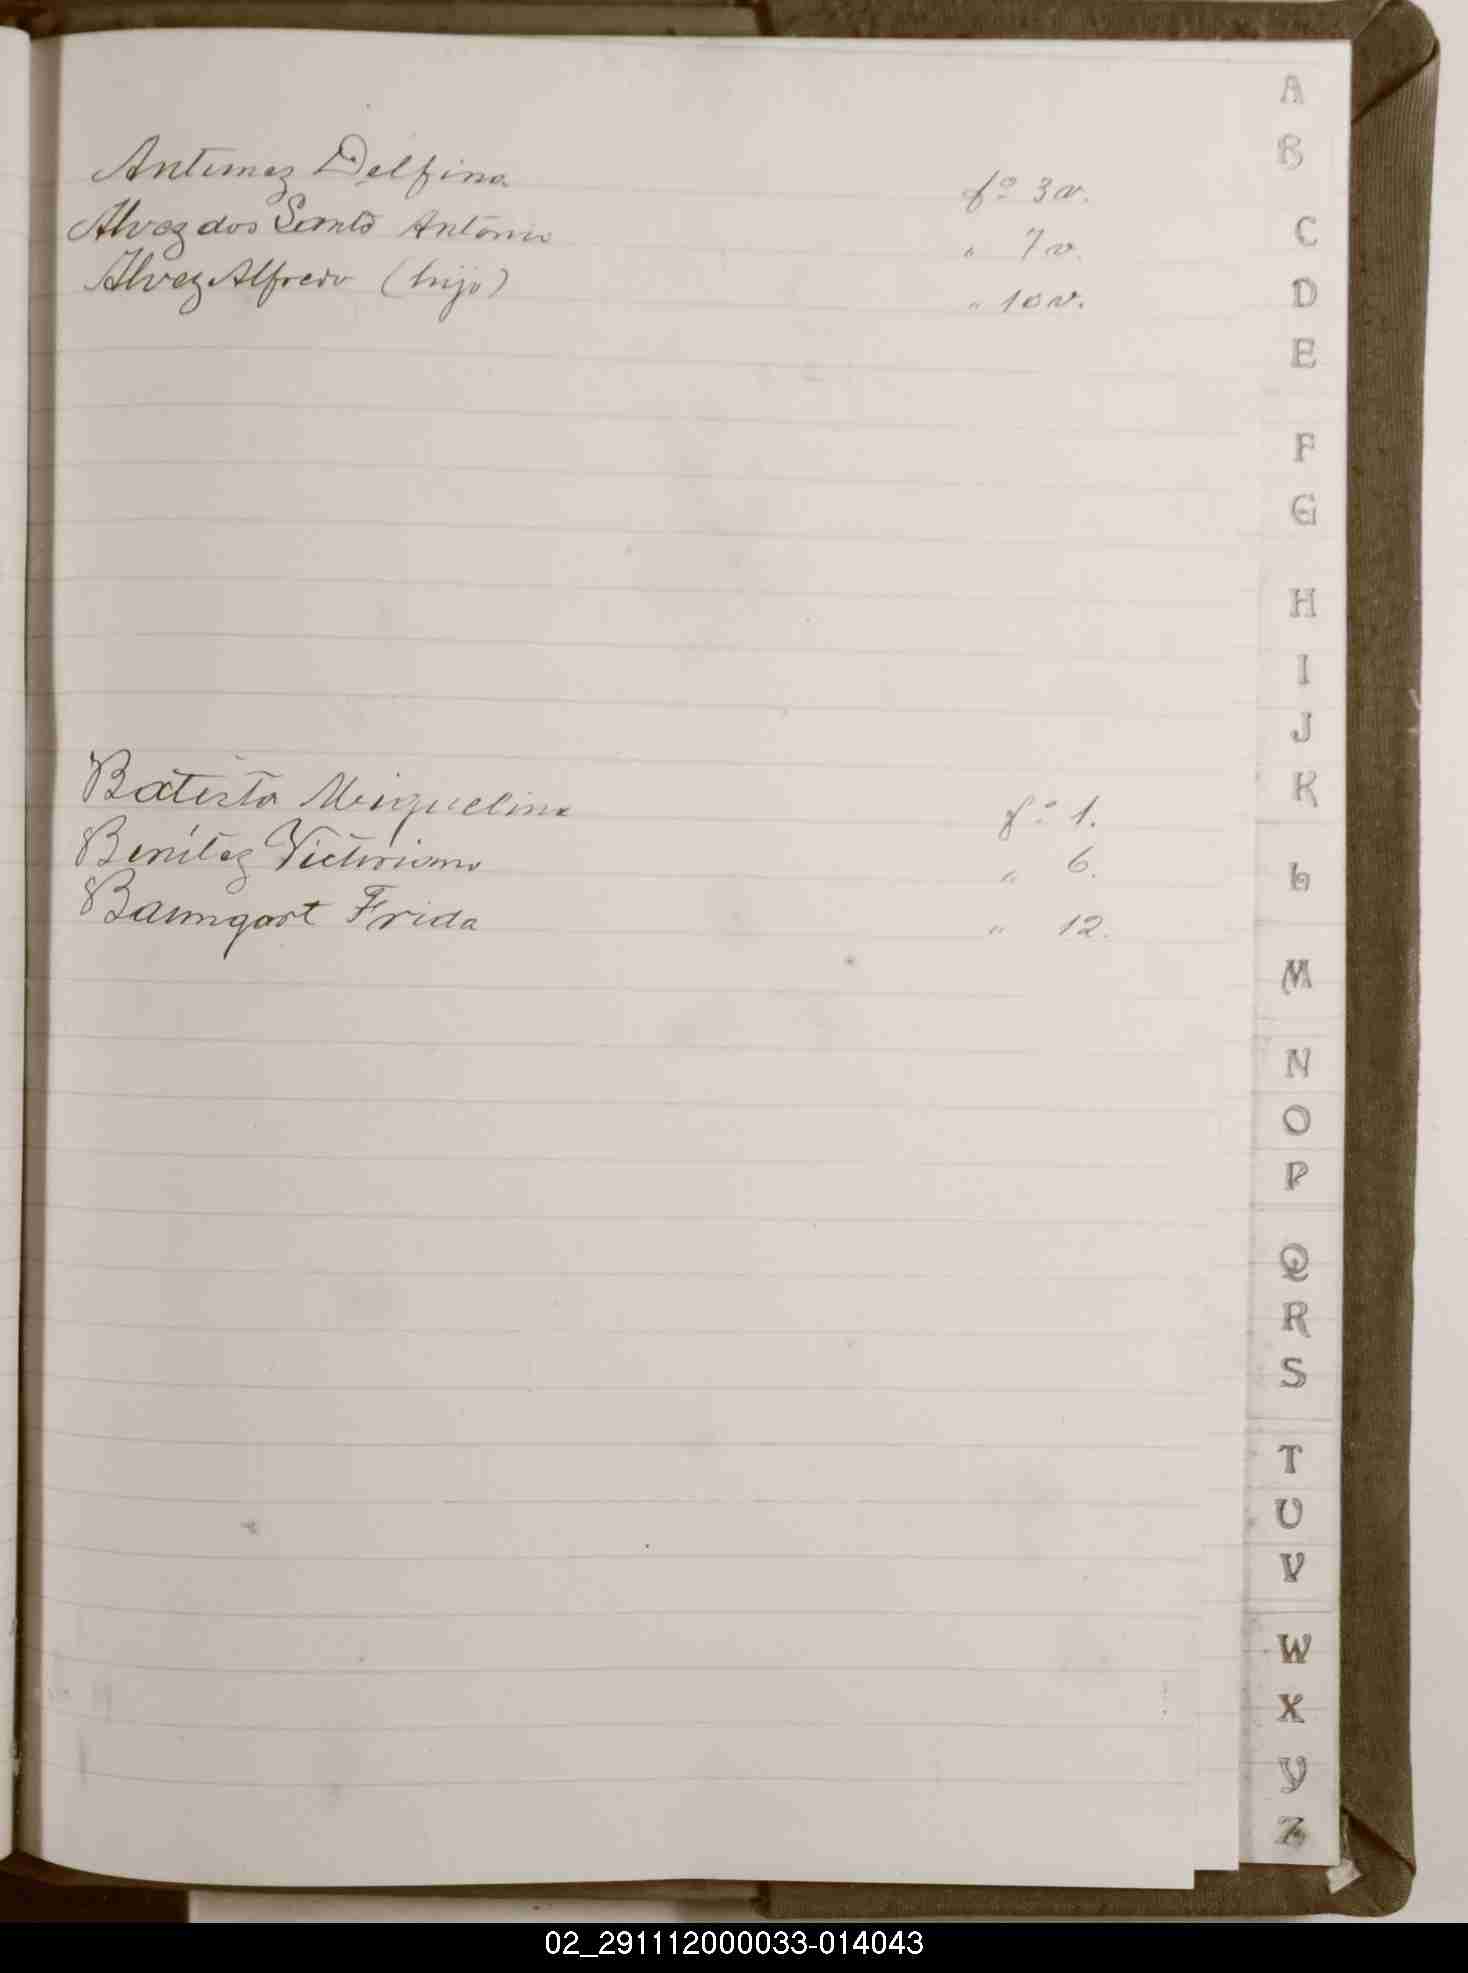 Antunez Delfina fº 3v.
Alvez dos Santo Antonio " 7v.
Alvez Alfredo (hijo) " 10v.
Batista Miguelina fº 1.
Benítez Victoriano " 6.
Baumgart Frida " 12.
A
B
C
D
E
F
G
H
I
J
K
L
M
N
O
P
Q
R
S
T
U
V
W
X
Y
Z
02_291112000033-014043